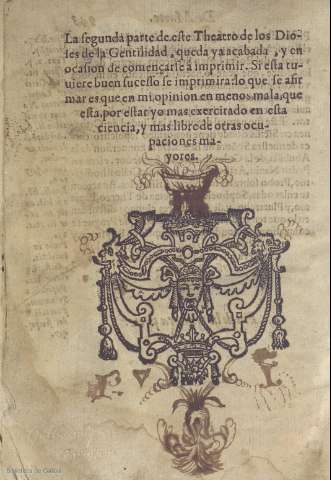 La segunda parte de este Theatro de los Dio-
ses de la Gentilidad, queda ya acabada, y en
ocasion de començarse à imprimir. Si esta tu-
uiere buen sucesso se imprimira: lo que se afir
mar es que en mi opinion en menos mala, que
esta, por estar yo mas exercitado en esta
ciencia, y mas libre de otras ocu-
paciones ma-
yores.
Biblioteca de Galicia